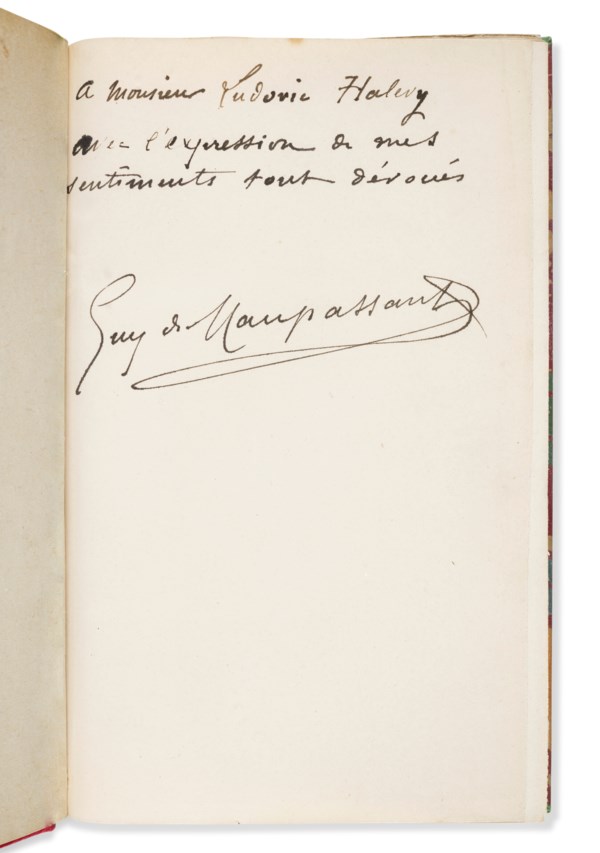 A Monsieur Ludovic Halevy
avec l'expression de mes
sentiments tout dévoués
Guy de Maupassant